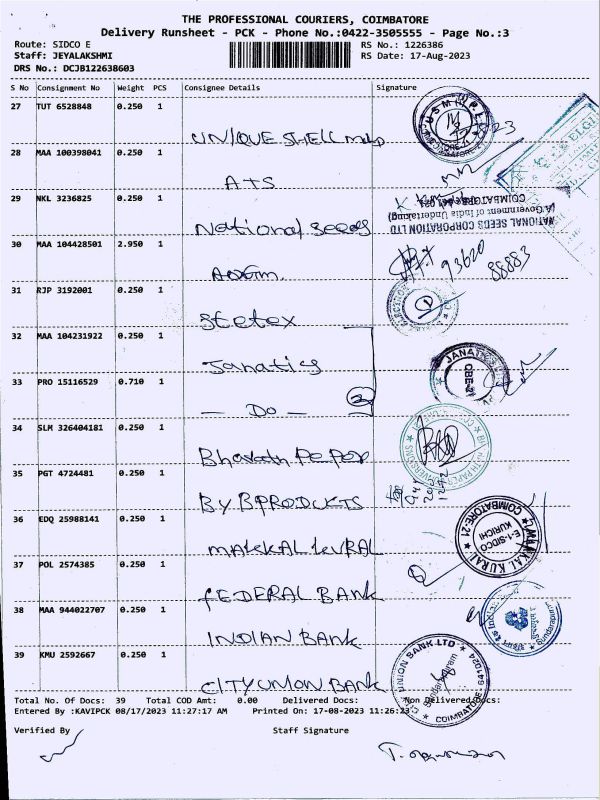 THE PROFESSIONAL COURIERS, COIMBATORE
Delivery Runsheet - PCK - Phone No.:0422-3505555 - Page No.:3
Route: SIDCO E RS No.: 1226386
Staff: JEYALAKSHMI RS Date: 17-Aug-2023
DRS No.: DCJB122638603
S No Consignment No Weight PCS Consignee Details Signature
27 TUT 6528848 0.250 1 UNIQUE SHELL
28 MAA 100398041 0.250 1 ATS
29 NKL 3236825 0.250 1 National seeds
NATIONAL SEEDS CORPORATION LTD
(A Government of India Undertaking)
COIMBATORE
30 MAA 104428501 2.950 1
93620
88883
31 RJP 3192001 0.250 1 Stetex
32 MAA 104231922 0.250 1 Janatics
JANATICS
CBE-21
33 PRO 15116529 0.710 1 - Do - 2
34 SLM 326404181 0.250 1 Bharath Paper
35 PGT 4724481 0.250 1 BYBPRODUCTS
36 EDQ 25988141 0.250 1 MAKKAL KURAL
MAKKAL KURAL
E-1-SIDCO
KURICHI
COIMBATORE-21
37 POL 2574385 0.250 1 FEDERAL BANK
38 MAA 944022707 0.250 1 INDIAN BANK
39 KMU 2592667 0.250 1 CITY UNION BANK
UNION BANK LTD
COIMBATORE 641024
Total No. Of Docs: 39 Total COD Amt: 0.00 Delivered Docs: Non Delivered Docs:
Entered By :KAVIPCK 08/17/2023 11:27:17 AM Printed On: 17-08-2023 11:26:23
Verified By Staff Signature